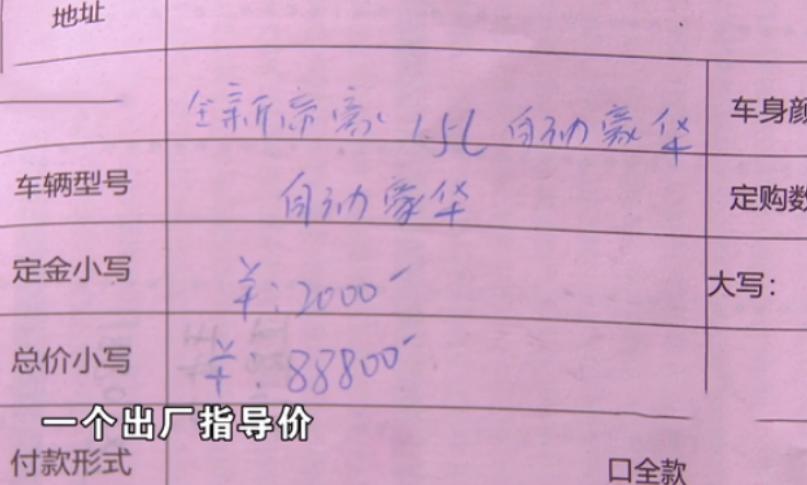 地址
全新帝豪 1.5L 自动豪华
车身颜
车辆型号
自动豪华
定购数
定金小写
¥:2000-
大写:
总价小写
¥:88800-
一个出厂指导价
付款形式
口全款